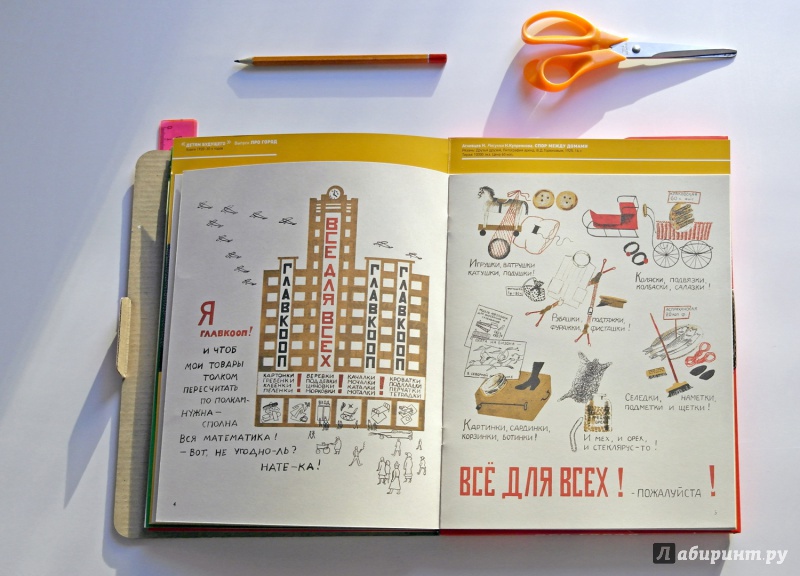 ДЕТЯМ БУДУЩЕГО Выпуск ПРО ГОРОД
ВСЕ ДЛЯ ВСЕХ
ГЛАВКООП
ГЛАВКООП
ГЛАВКООП
КАРТОНКИ
ГРЕБЕНКИ
КЛЕЕНКИ
ПЕЛЕНКИ
!
ВЕРЕВКИ
ПОДДЕВКИ
ЦИНОВКИ
МОРКОВКИ
!
КАЧАЛКИ
МОЧАЛКИ
КАТАЛКИ
МОТАЛКИ
!
КРОВАТКИ
ПЕРЧАТКИ
ТЕТРАДКИ
ВХОД
Я
ГЛАВКООП!
И ЧТОБ
МОИ ТОВАРЫ
ТОЛКОМ
ПЕРЕСЧИТАТЬ
ПО ПОЛКАМ-
НУЖНА —
СПОЛНА
ВСЯ МАТЕМАТИКА!
- ВОТ, НЕ УГОДНО-ЛЬ?
НАТЕ-КА!
4
Агнивцев Н. Рисунки Н. Купреянова. СПОР МЕЖДУ ДОМАМИ
ИГРУШКИ, ВАТРУШКИ
КАТУШКИ, ПОДУШКИ!
КОЛЯСКИ, ПОДВЯЗКИ,
КОЛБАСКИ, САЛАЗКИ!
РУБАШКИ, ПОДТЯЖКИ,
ФУРАЖКИ, ФИСТАШКИ!
КАРТИНКИ, САРДИНКИ,
КОРЗИНКИ, БОТИНКИ!
СЕЛЕДКИ, НАМЕТКИ,
ПОДМЕТКИ И ЩЕТКИ!
И МЕХ, И ОРЕХ,
И СТЕКЛЯРУС-ТО!
ВСЁ ДЛЯ ВСЕХ! - ПОЖАЛУЙСТА!
Лабиринт.ру